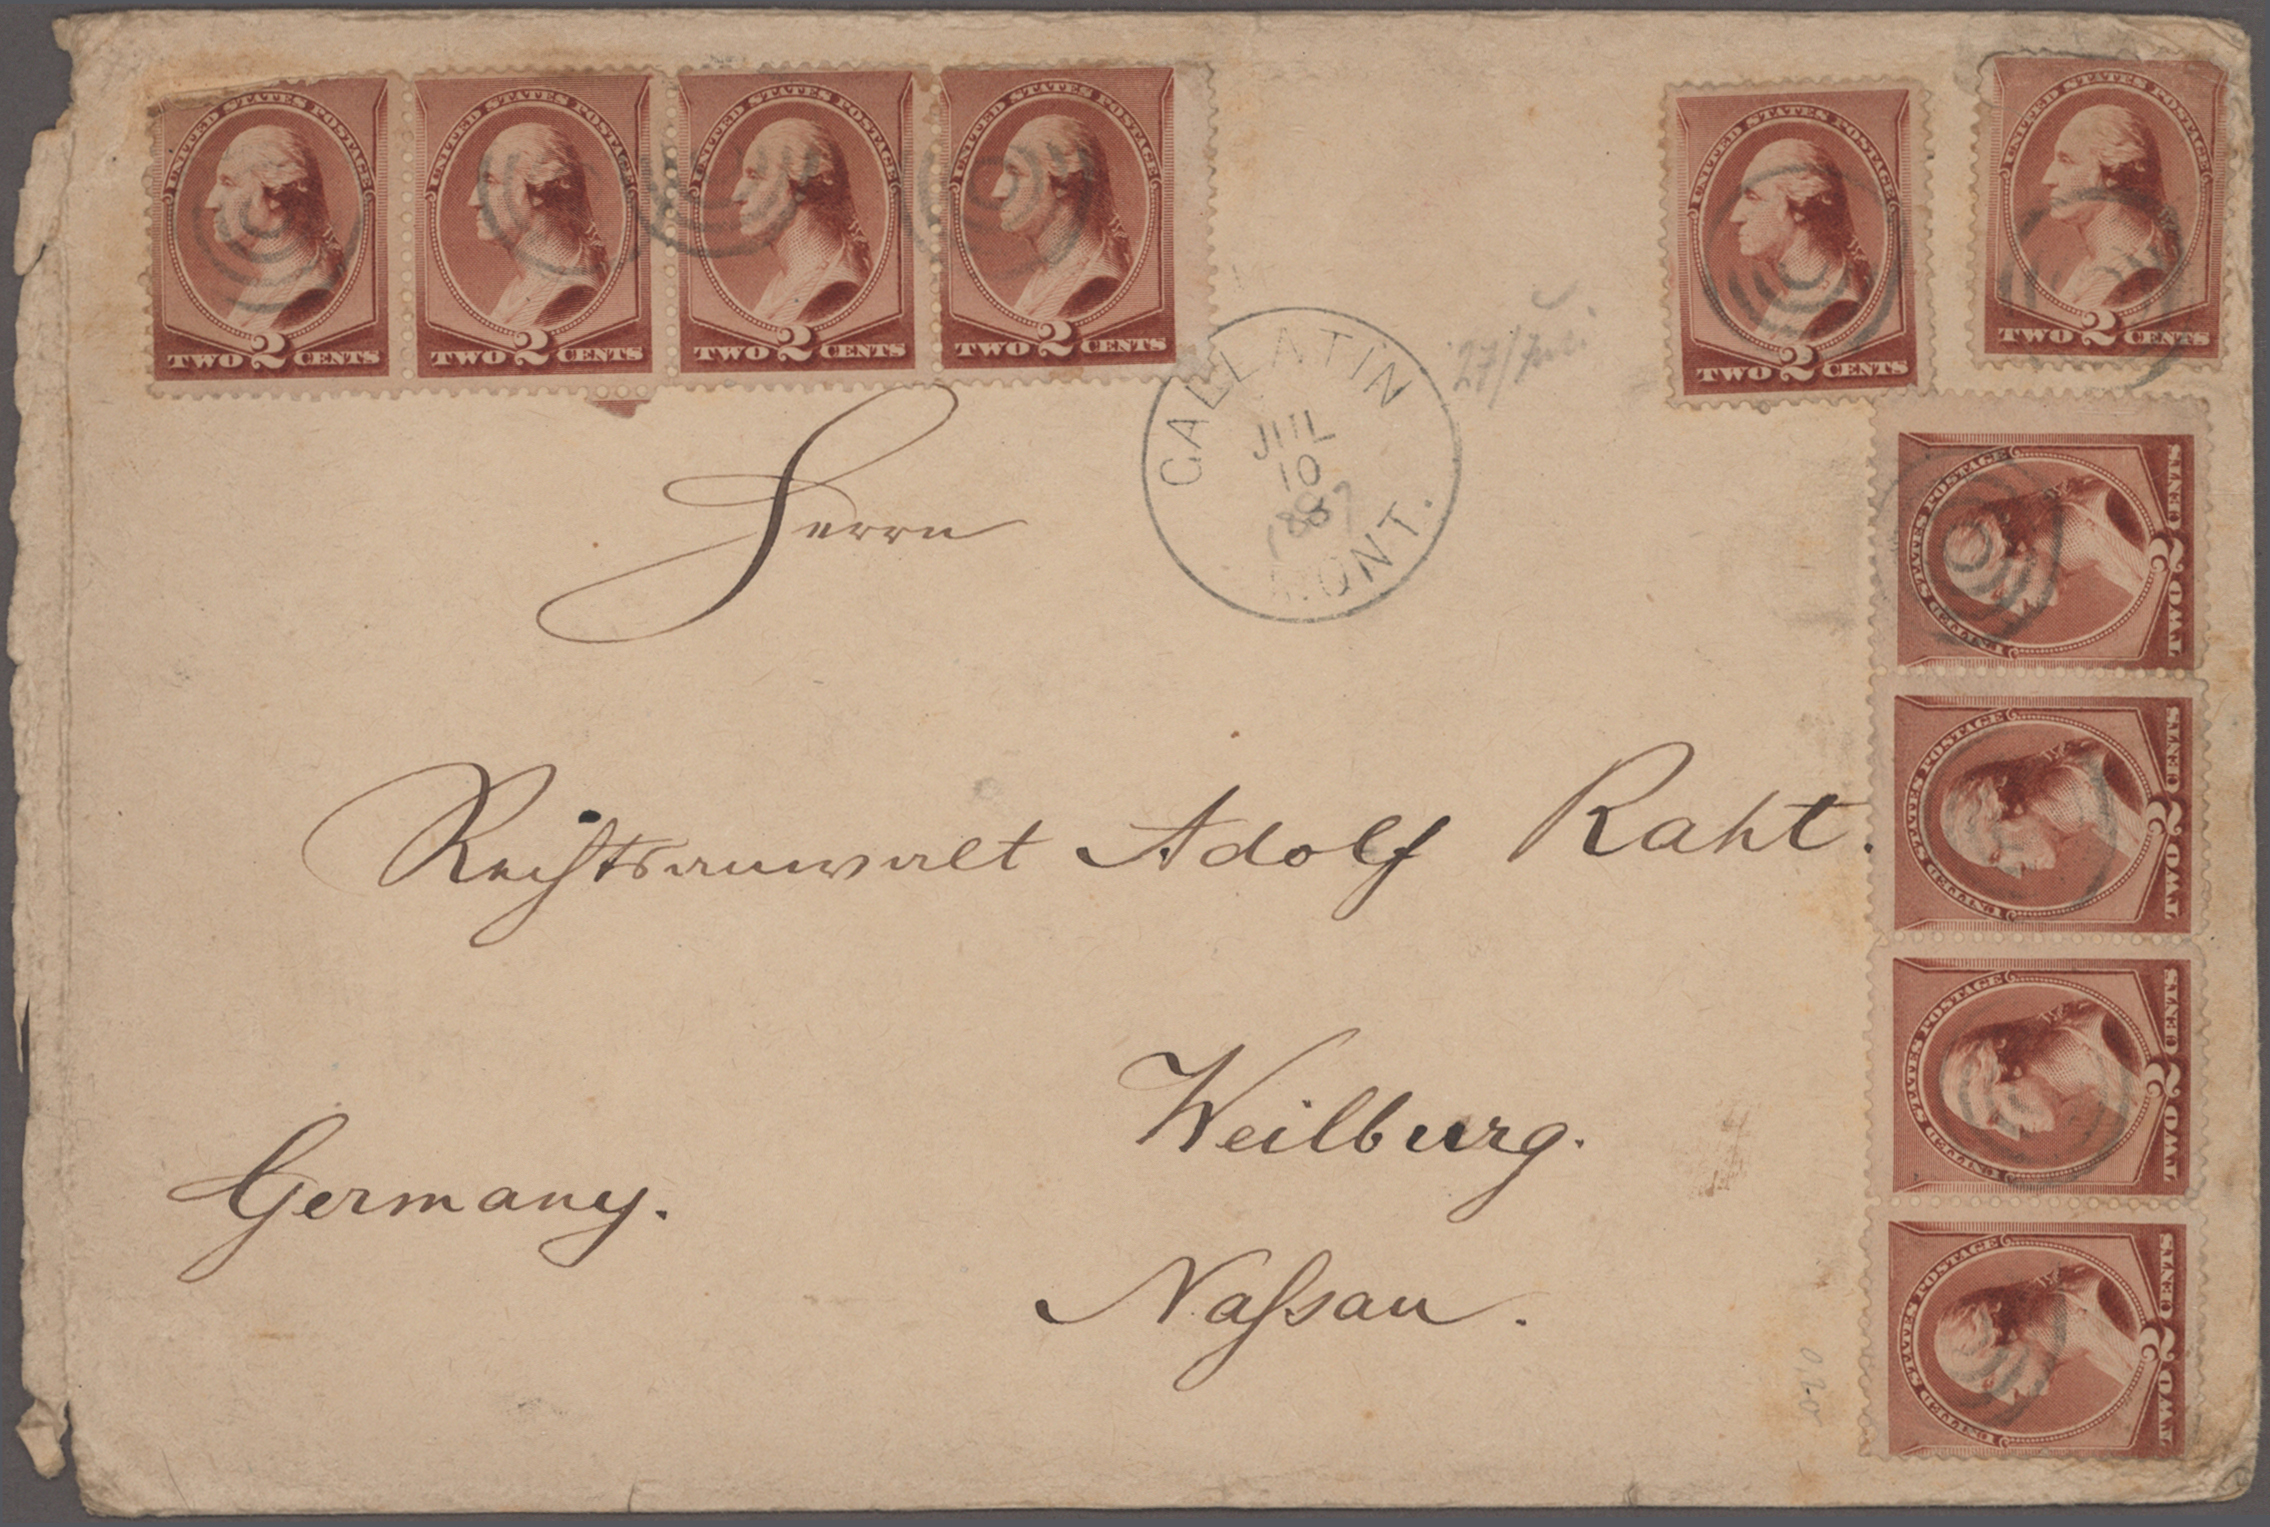 UNITED STATES POSTAGE
TWO 2 CENTS
UNITED STATES POSTAGE
TWO 2 CENTS
UNITED STATES POSTAGE
TWO 2 CENTS
UNITED STATES POSTAGE
TWO 2 CENTS
UNITED STATES POSTAGE
TWO 2 CENTS
UNITED STATES POSTAGE
TWO 2 CENTS
GALLATIN
JUL
10
1887
MONT.
27/Juli
Herrn
UNITED STATES POSTAGE
TWO 2 CENTS
Rechtsanwalt Adolf Raht.
UNITED STATES POSTAGE
TWO 2 CENTS
Weilburg.
UNITED STATES POSTAGE
TWO 2 CENTS
Germany.
Naſsau.
UNITED STATES POSTAGE
TWO 2 CENTS